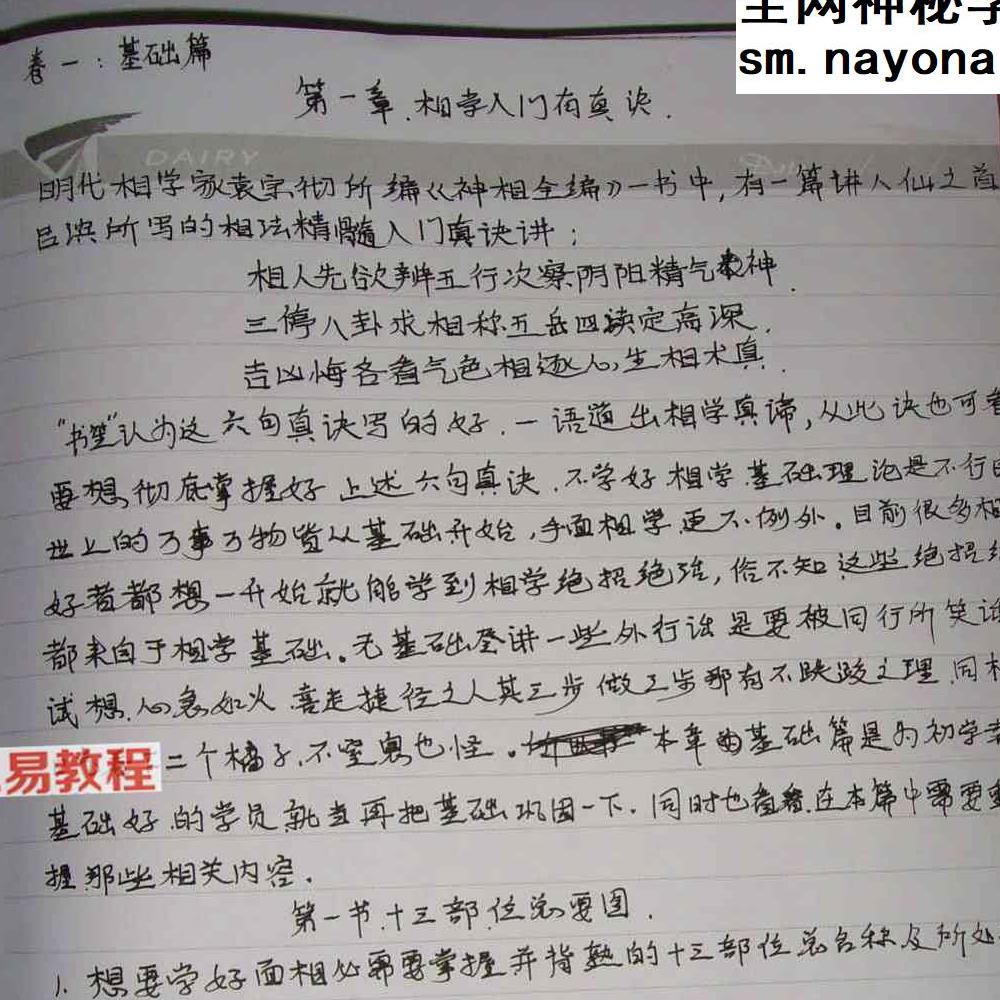 全网神秘学
sm.nayona
卷一：基础篇
第一章.相学入门有真诀.
DAIRY
明代相学家袁宗彻所编《神相全编》一书中,有一篇讲人仙之首
吕洞所写的相法精髓入门真诀讲：
相人先欲辨五行次察阴阳精气神.
三停八卦求相称五岳四渎定高深.
吉凶悔吝看气色相逐心生相术真.
"书笙"认为这六句真诀写的好.一语道出相学真谛,从此诀也可看
要想彻底掌握好上述六句真诀.不学好相学基础理论是不行的
世上的万事万物皆从基础开始,手面相学更不例外.目前很多相
好者都想一开始就能学到相学绝招绝活,俗不知这些绝招绝
都来自于相学基础.无基础登讲一些外行话是要被同行所笑话
试想.心急如火.喜走捷径之人其三步做二步那有不跌跤之理.同样
易教程
二个橘子.不窒息也怪.本章的基础篇是为初学者
基础好的学员就当再把基础巩固一下.同时也看看在本篇中需要重
握那些相关内容.
第一节.十三部位总要图.
1.想要学好面相必需要掌握并背熟的十三部位总名称及所处